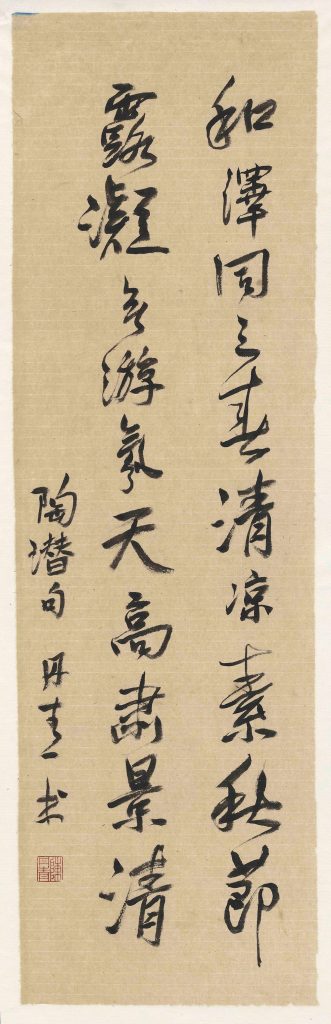 和澤同三春清凉素秋節
露凝无游氛天高肅景清
陶潜句 丹青